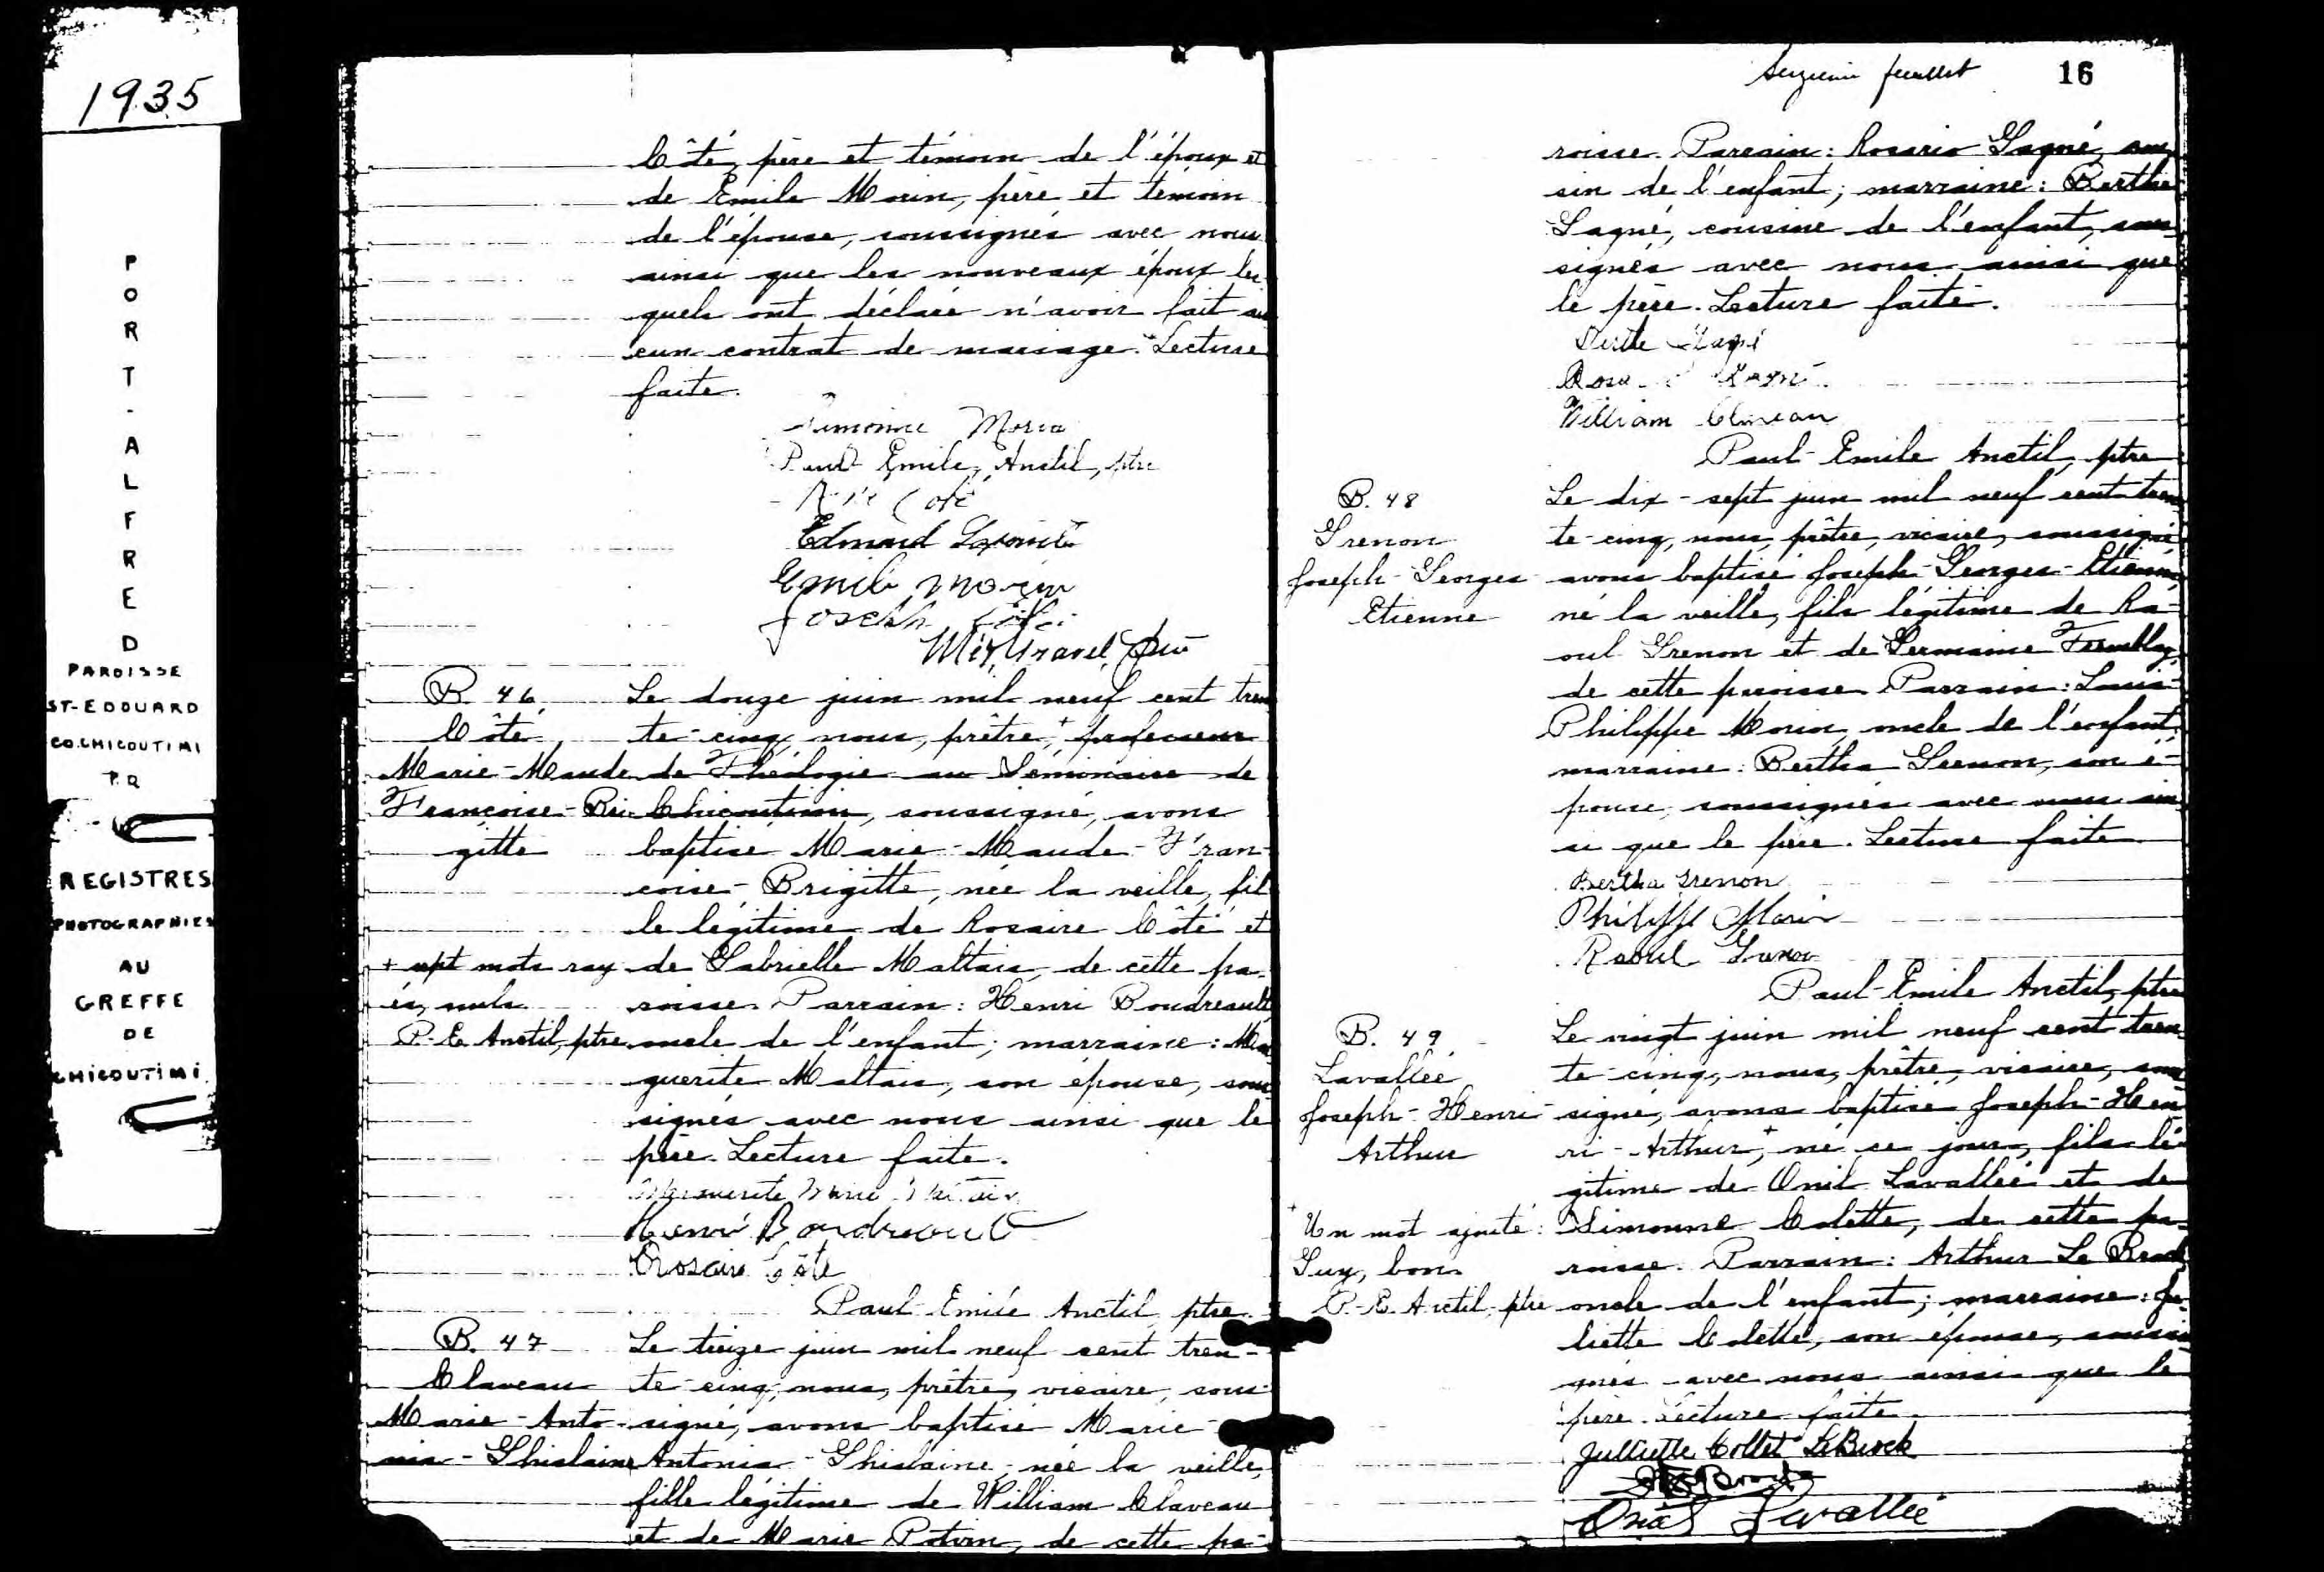 1935
PORT-ALFRED
PAROISSE
ST-EDOUARD
CO. CHICOUTIMI
P.Q
REGISTRES
PHOTOGRAPHIES
AU
GREFFE
DE
CHICOUTIMI
Côté, père et témoin de l'époux et
de Emile Morin, père et témoin
de l'épouse, soussignés avec nous
ainsi que les nouveaux époux les-
quels ont déclaré n'avoir fait au
cun contrat de mariage. Lecture
faite.
Simonne Morin
Paul-Emile Anctil, ptre
Côté
Edmond
Emile Morin
Joseph Côté
Gravel, ptre
B. 46
Côté,
Marie-Maude
Françoise-Bri-
gitte
+ sept mots ray
és, nuls
P.-E. Anctil, ptre
Le douze juin mil neuf cent tren
te-cinq, nous, prêtre,+ professeur
de Théologie au Séminaire de
Chicoutimi, soussigné, avons
baptisé Marie-Maude-Fran-
çoise-Brigitte, née la veille, fil
le légitime de Rosaire Côté et
de Gabrielle Maltais, de cette pa-
roisse. Parrain: Henri Boudreault
oncle de l'enfant; marraine: Mar
guerite Maltais, son épouse, sous
signés avec nous ainsi que le
père. Lecture faite.
Marguerite Marie Maltais
Henri Boudreault
Rosaire Côté
Paul-Emile Anctil, ptre.
B. 47
Claveau
Marie-Anto-
nia-Ghislaine
Le treize juin mil neuf cent tren-
te-cinq, nous, prêtre, vicaire, sous-
signé, avons baptisé Marie-
Antonia-Ghislaine, née la veille,
fille légitime de William Claveau
et de Marie Potvin, de cette pa-
feuillet 16
roisse. Parrain: Rosario Gagné, cou
sin de l'enfant; marraine: Berthe
Gagné, cousine de l'enfant, sous
signés avec nous ainsi que
le père. Lecture faite.
Berthe Gagné
Gagné
William Claveau
Paul-Emile Anctil, ptre
B. 48
Grenon
Joseph-Georges
Etienne
Le dix-sept juin mil neuf cent tren
te-cinq, nous, prêtre, vicaire, soussigné
avons baptisé Joseph-Georges-Etienne,
né la veille, fils légitime de Ra-
oul Grenon et de Germaine Tremblay,
de cette paroisse. Parrain: Louis-
Philippe Morin, oncle de l'enfant;
marraine: Bertha Grenon, son é-
pouse, soussignés avec nous ain
si que le père. Lecture faite
Bertha Grenon
Philippe Morin
Raoul Grenon
Paul-Emile Anctil, ptre
B. 49
Lavallée
Joseph-Henri-
Arthur
+ Un mot ajouté:
Guy, bon.
P.-E. Anctil, ptre
Le vingt juin mil neuf cent tren
te-cinq, nous, prêtre, vicaire, sous
signé, avons baptisé Joseph-Hen
ri-Arthur+, né ce jour, fils lé-
gitime de Onil Lavallée et de
Simonne Colette, de cette pa-
roisse. Parrain: Arthur Le
oncle de l'enfant; marraine: Ju-
liette Colette, son épouse, soussi
gnés avec nous ainsi que le
père. Lecture faite.
Julliette Collet
Lavallée